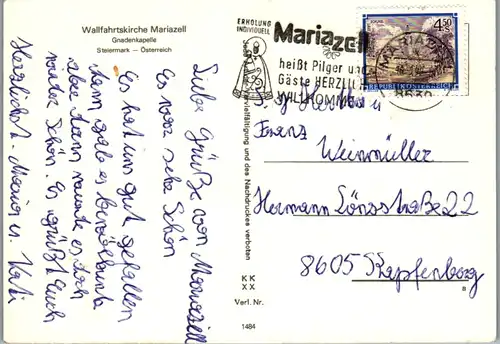 Wallfahrtskirche Mariazell
Gnadenkapelle
Steiermark — Österreich
Liebe Grüße von Mariazell
Es war sehr schön
Es hat uns gut gefallen
dann gab es
aber dann wurde es doch
wieder schön. Es grüßt Euch
Herzlichst. Maria u. Kati
Vervielfältigung und des Nachdruckes verboten
KK
XX
Verl. Nr.
1484
ERHOLUNG
INDIVIDUELL
Mariazell
heißt Pilger und
Gäste HERZLICH
WILLKOMMEN
MARIAZELL
8630
4.50
S
REPUBLIK ÖSTERREICH
Franz
Weinmüller
Hermann Lönsstraße 22
8605 Kapfenberg